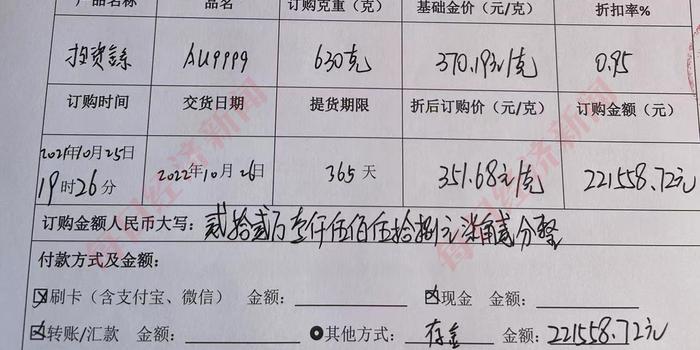 产品名称 品名 订购克重（克） 基础金价（元/克） 折扣率%
投资金条 AU9999 630克 370.19元/克 0.95
订购时间 交货日期 提货期限 折后订购价（元/克） 订购金额（元）
2021年10月25日
19时26分 2022年10月26日 365天 351.68元/克 221558.72元
订购金额人民币大写：贰拾贰万壹仟伍佰伍拾捌元柒角贰分整
付款方式及金额：
刷卡（含支付宝、微信） 金额： 现金 金额：
转账/汇款 金额： 其他方式：存金 金额：221558.72元
每日经济新闻